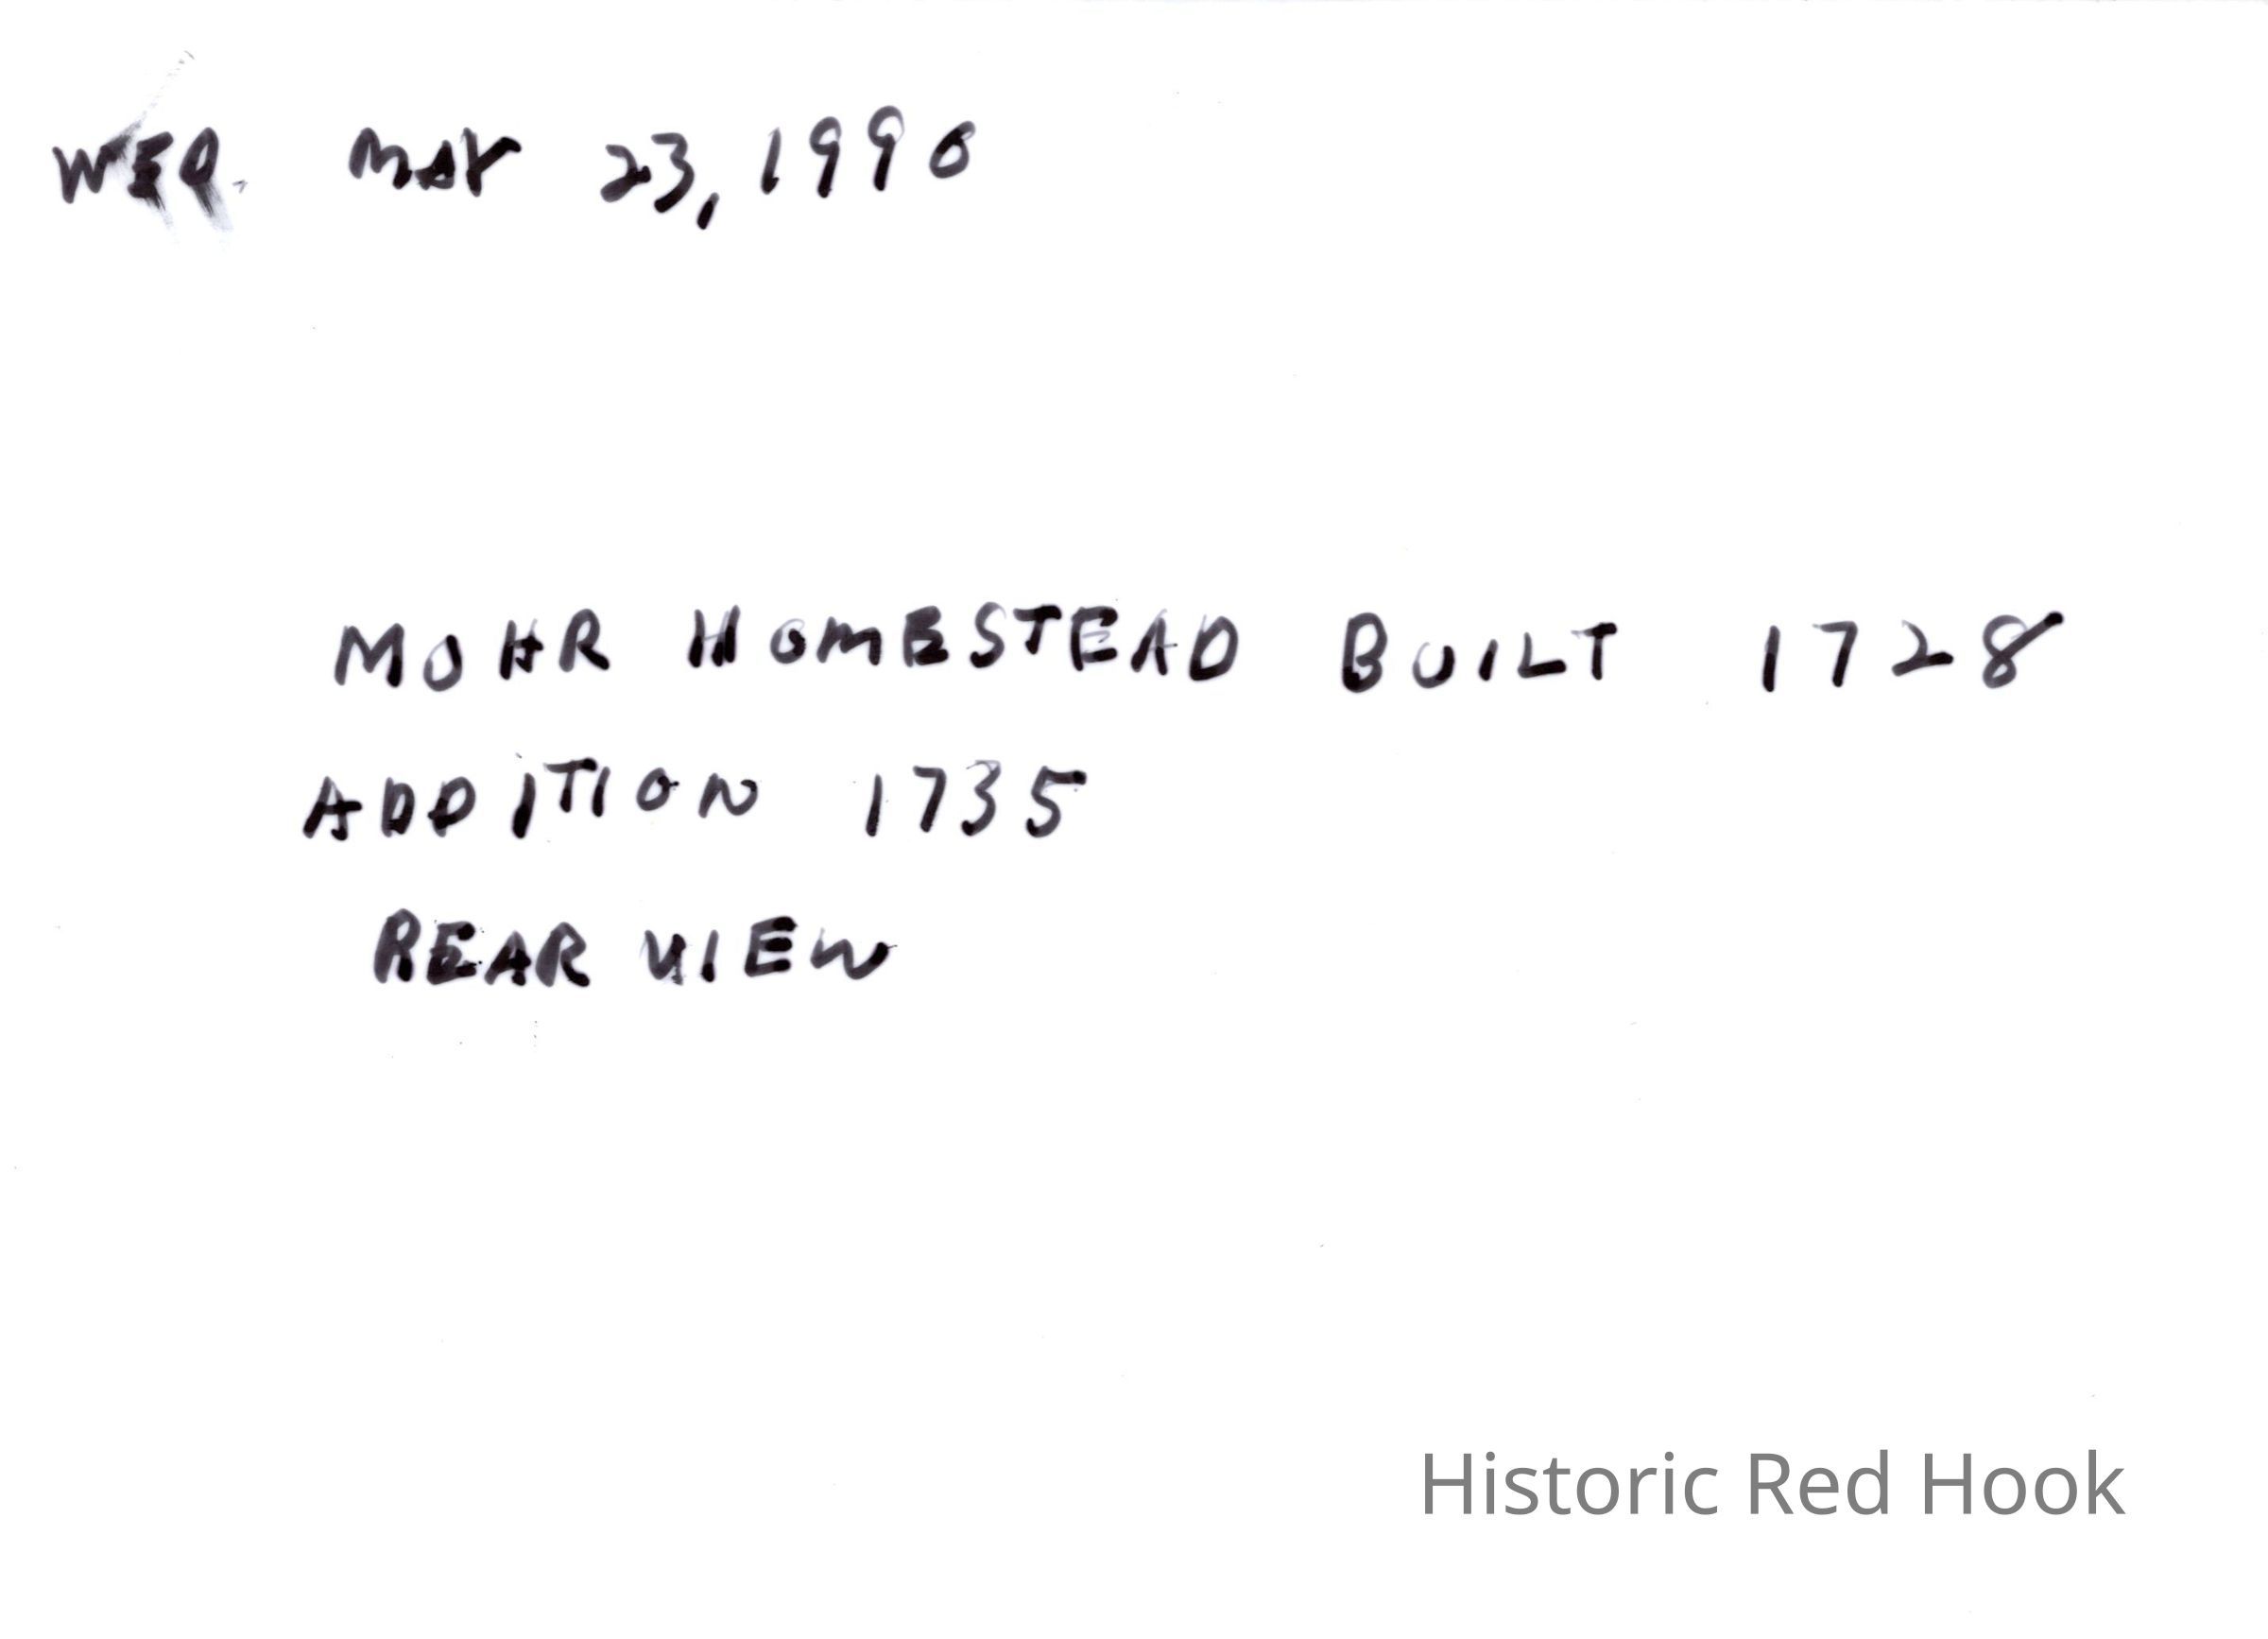 WED. MAY 23, 1990
MOHR HOMESTEAD BUILT 1728
ADDITION 1735
REAR VIEW
Historic Red Hook